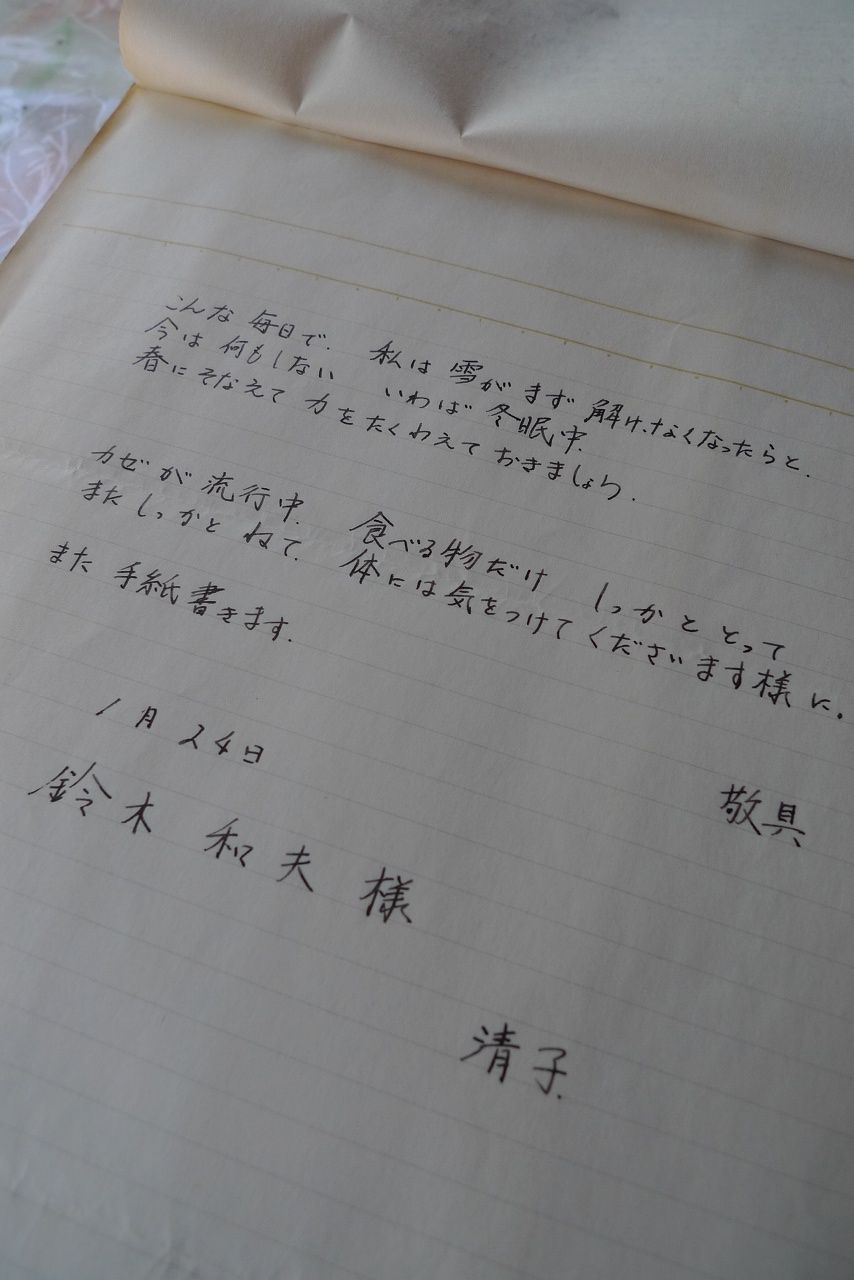 こんな毎日で. 私は雪がまず解け、なくなったらと.
今は何もしない いわば冬眠中.
春にそなえて力をたくわえておきましょう.
カゼが流行中. 食べる物だけ しっかと とって
また しっかと ねて. 体には気をつけてくださいます様に.
また手紙書きます.
敬具
1月24日
鈴木和夫様
清子.